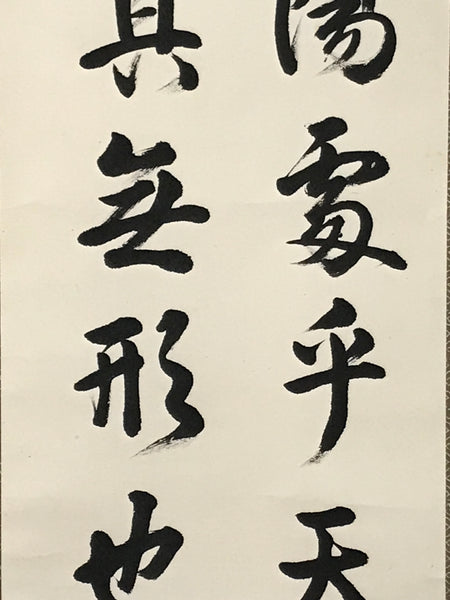 陽處乎天
其無形也